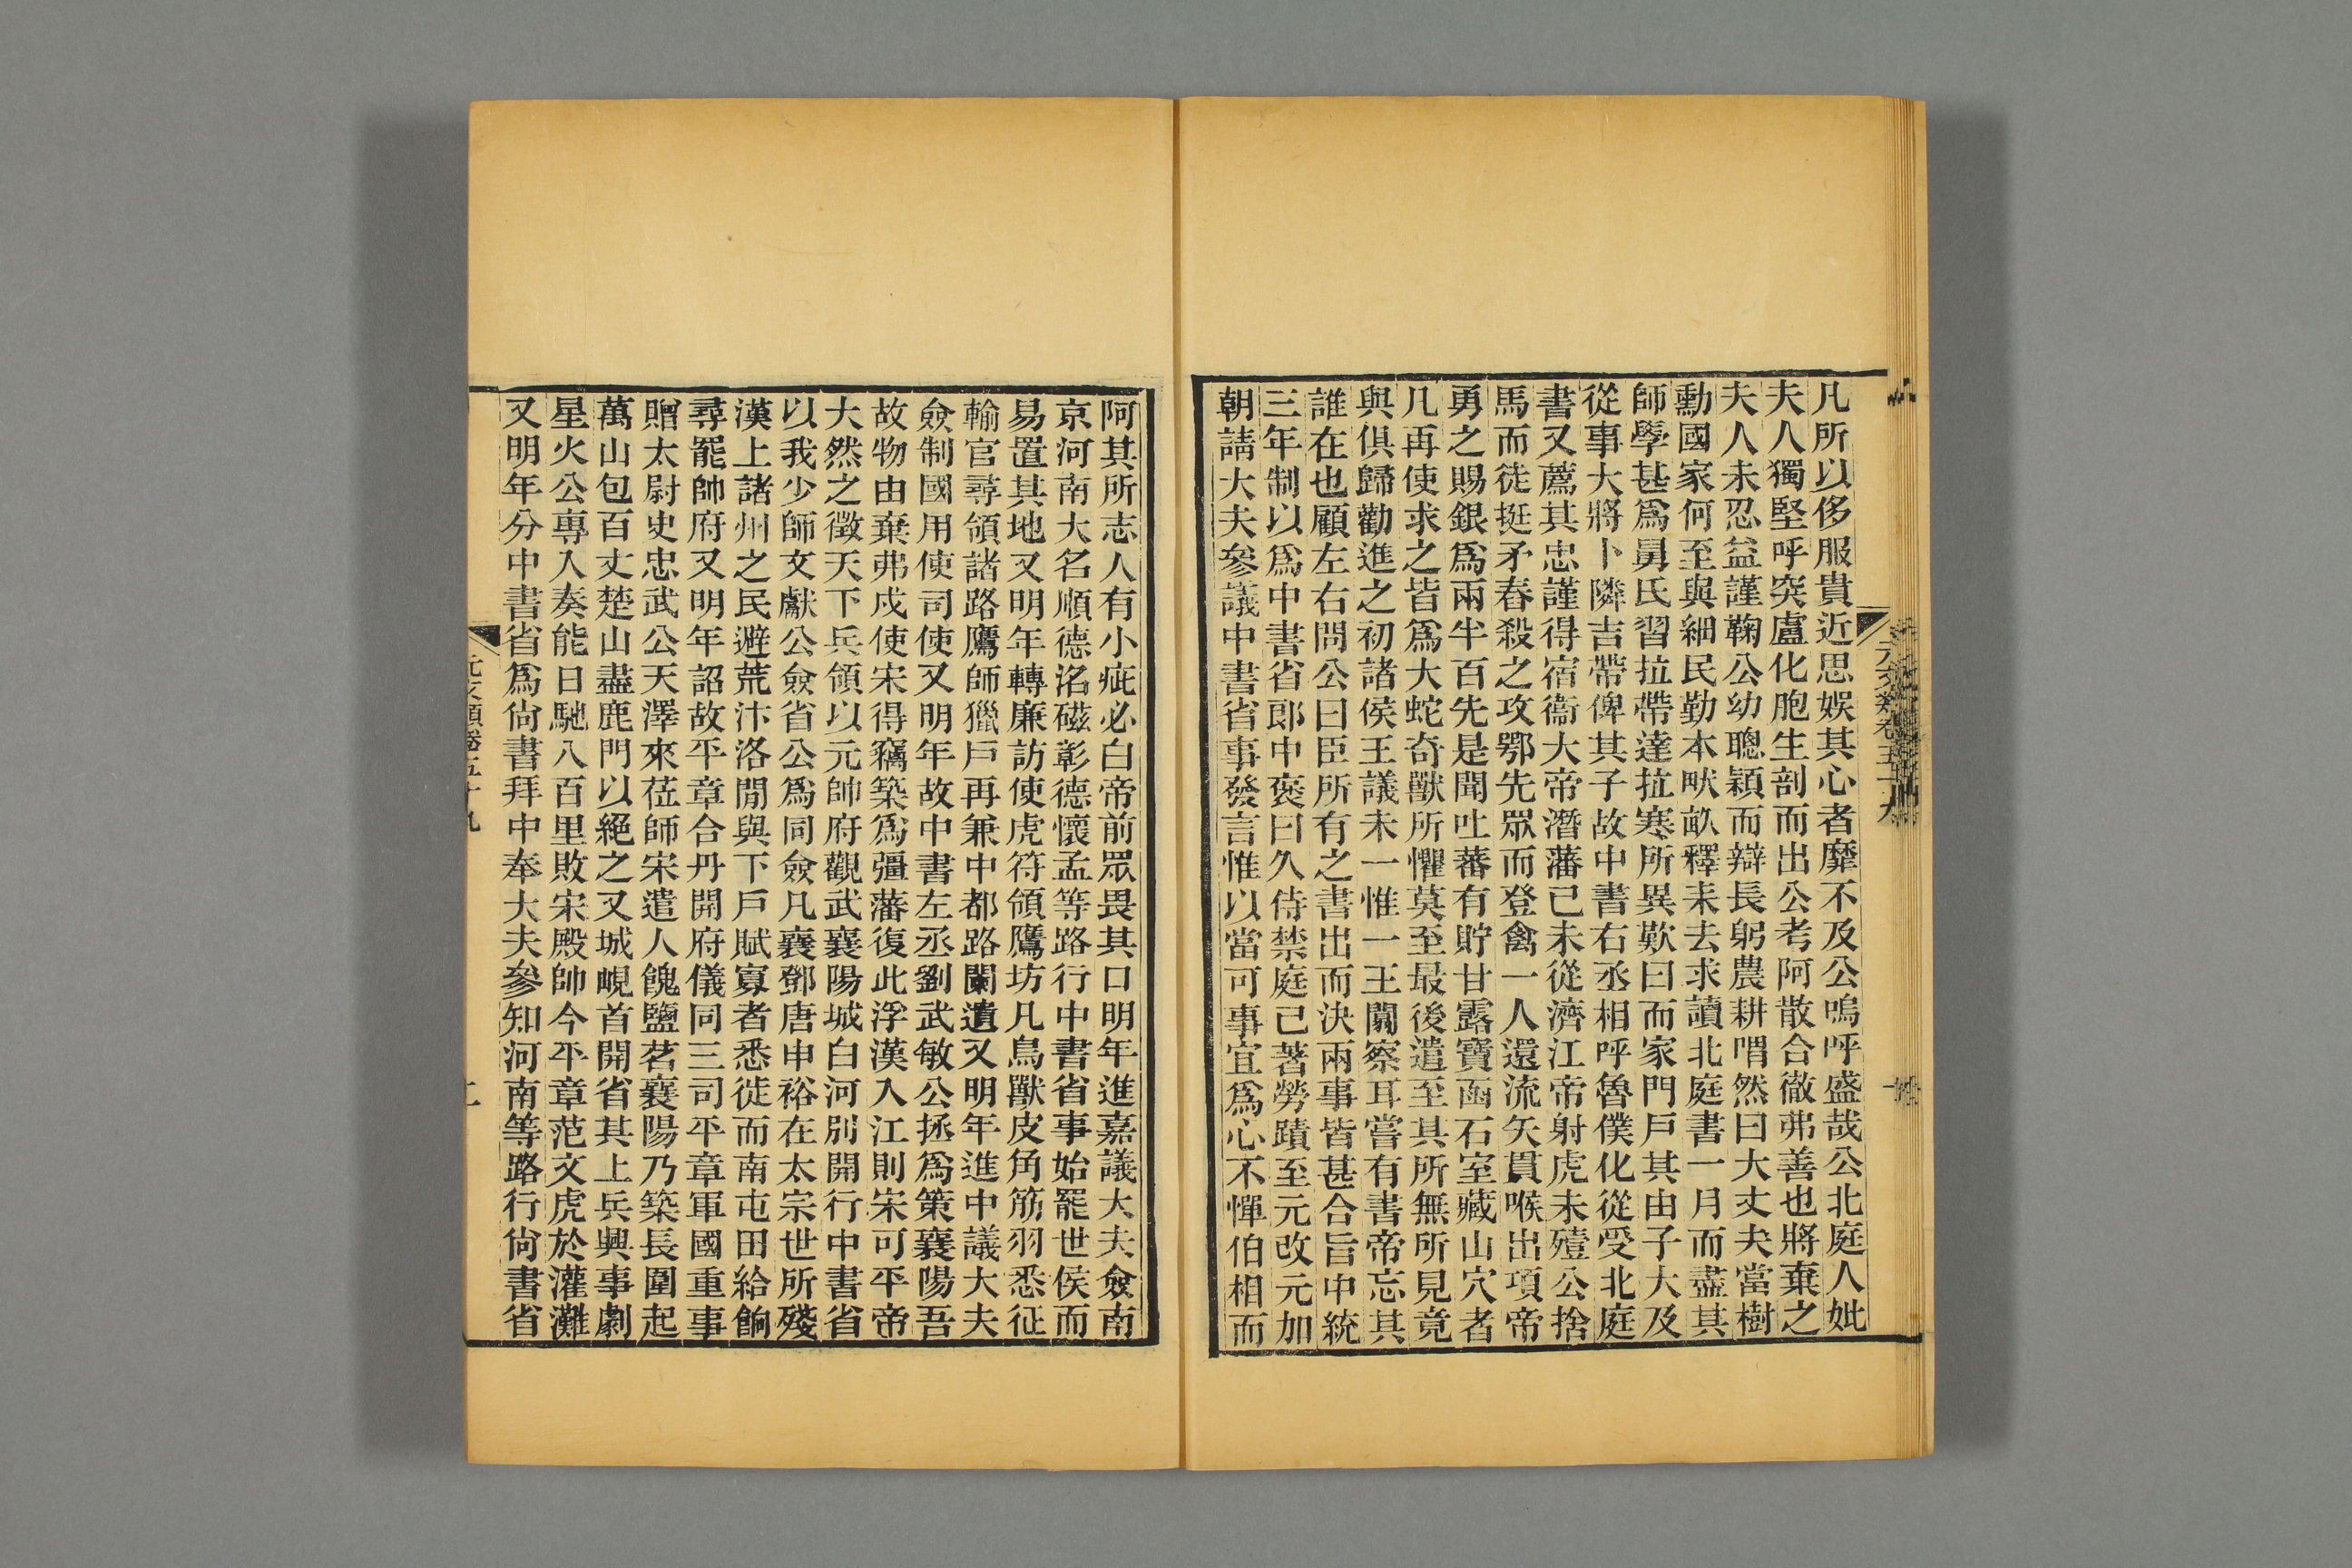 凡所以侈服貴近思娛其心者靡不及公嗚呼盛哉公北庭人妣
夫人獨堅呼突盧化胞生剖而出公考阿散合徹弗善也將棄之
夫人未忍益謹鞠公幼聰穎而辯長躬農耕喟然曰大丈夫當樹
勳國家何至與細民勤本畎畝釋耒去求讀北庭書一月而盡其
師學甚爲舅氏習拉帶達拉寒所異歎曰而家門戶其由子大及
從事大將卜隣吉帶俾其子故中書右丞相呼魯僕化從受北庭
書又薦其忠謹得宿衞大帝潛藩已未從濟江帝射虎未殪公捨
馬而徒挺矛舂殺之攻鄂先眾而登禽一人還流矢貫喉出項帝
勇之賜銀爲兩半百先是聞吐蕃有貯甘露寶函石室藏山穴者
凡再使求之皆爲大蛇奇獸所懼莫至最後遣至其所無所見竟
與俱歸勸進之初諸侯王議未一惟一王闚察耳嘗有書帝忘其
誰在也顧左右問公曰臣所有之書出而決兩事皆甚合旨中統
三年制以爲中書省郎中褒曰久侍禁庭已著勞蹟至元改元加
朝請大夫參議中書省事發言惟以當可事宜爲心不憚伯相而
阿其所志人有小疵必白帝前眾畏其口明年進嘉議大夫僉南
京河南大名順德洺磁彰德懷孟等路行中書省事始罷世侯而
易置其地又明年轉廉訪使虎符領鷹坊凡鳥獸皮角筋羽悉征
輸官尋領諸路鷹師獵戶再兼中都路闌遺又明年進中議大夫
僉制國用使司使又明年故中書左丞劉武敏公拯爲策襄陽吾
故物由棄弗戍使宋得竊築爲彊藩復此浮漢入江則宋可平帝
大然之徵天下兵領以元帥府觀武襄陽城白河別開行中書省
以我少師文獻公僉省公爲同僉凡襄鄧唐申裕在太宗世所殘
漢上諸州之民避荒汴洛閒與下戶賦寡者悉徙而南屯田給餉
尋罷帥府又明年詔故平章合丹開府儀同三司平章軍國重事
贈太尉史忠武公天澤來莅師宋遣人餽鹽茗襄陽乃築長圍起
萬山包百丈楚山盡鹿門以絕之又城峴首開省其上兵興事劇
星火公專入奏能日馳八百里敗宋殿帥今平章范文虎於灌灘
又明年分中書省爲尙書拜中奉大夫參知河南等路行尙書省
元文類卷五十九